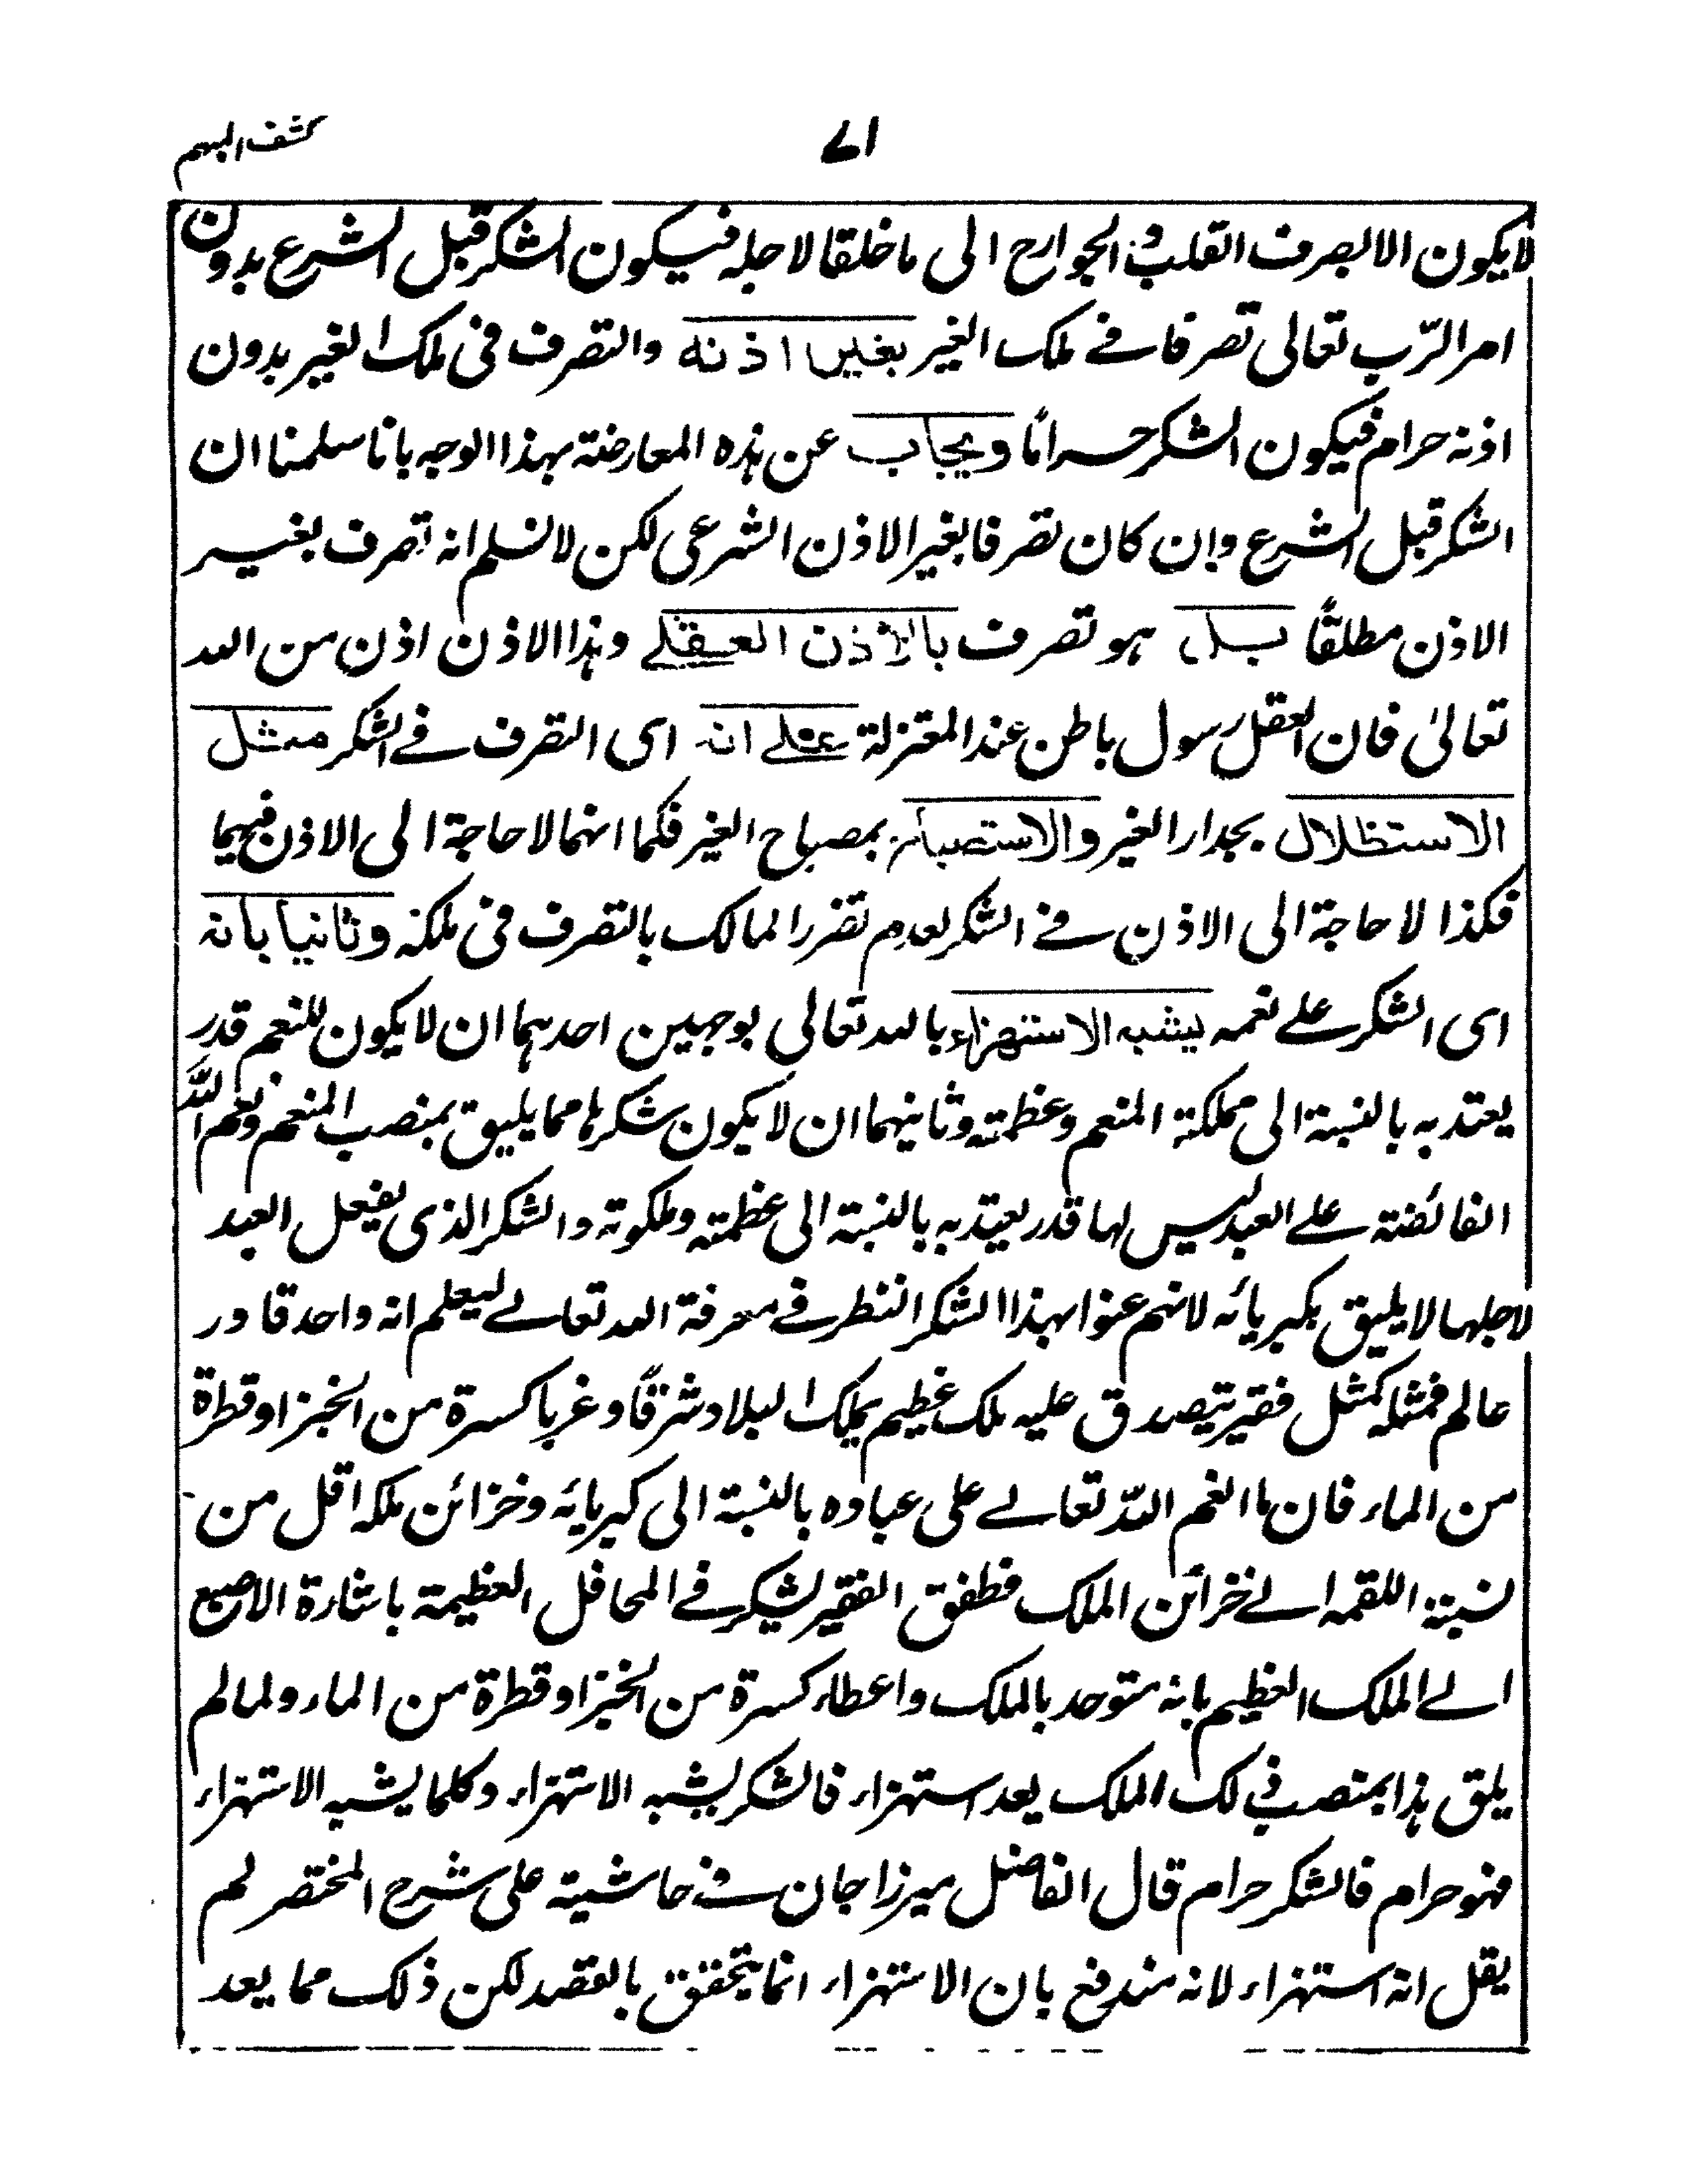 كشف المبهم
٧١
لا يكون الا بصرف القلب والجوارح الى ما خلقا لاجله فيكون الشكر قبل الشرع بدون
امر الرّب تعالى تصرفا في ملك الغير بغير اذنه والتصرف فى ملك الغير بدون
اذنه حرام فيكون الشكر حراما ويجاب عن هذه المعارضة بهذا الوجه بانا سلمنا ان
الشكر قبل الشرع وان كان تصرفا بغير الاذن الشرعى لكن لا نسلم انه تصرف بغير
الاذن مطلقًا بل هو تصرف بالاذن العقلے وهذا الاذن اذن من الله
تعالىٰ فان العقل رسول باطن عند المعتزلة علے انه اى التصرف فے الشكر مثل
الاستظلال بجدار الغير والاستصباح بمصباح الغير فكما انهما لا حاجة الى الاذن فيهما
فكذا لا حاجة الى الاذن فے الشكر لعدم تضرر المالك بالتصرف فى ملكه وثانيا بانه
اى الشكر علے نعمه يشبه الاستهزاء بالله تعالى بوجهين احدهما ان لا يكون للنعم قدر
يعتد به بالنسبة الى مملكة المنعم وعظمته وثانيهما ان لا يكون شكرها مما يليق بمنصب المنعم ونعم اللّٰه
الفائضة علے العبد ليس لها قدر يعتد به بالنسبة الى عظمته وملكوته والشكر الذى يفعل العبد
لاجلها لا يليق بكبريائه لانهم عنوا بهذا الشكر النظر فے معرفة الله تعالے ليعلم انه واحد قادر
عالم فمثله كمثل فقير يتصدق عليه ملك عظيم يملك البلاد شرقًا وغربا كسرة من الخبز او قطرة
من الماء فان ما انعم اللّه تعالے على عباده بالنسبة الى كبريائه وخزائن ملكه اقل من
نسبة اللقمه الے خزائن الملك فطفق الفقير يشكر فے المحافل العظيمة باشارة الاصبع
الے الملك العظيم بانه متوحد بالملك واعطاء كسرة من الخبز او قطرة من الماء ولما لم
يلق هذا بمنصب ذلك الملك يعد استهزاء فالشكر يشبه الاستهزاء وكلما يشبه الاستهزاء
فهو حرام فالشكر حرام قال الفاضل ميرزا جان فے حاشيته على شرح المختصر لم
يقل انه استهزاء لانه مندفع بان الاستهزاء انما يتحقق بالقصد لكن ذلك مما يعد